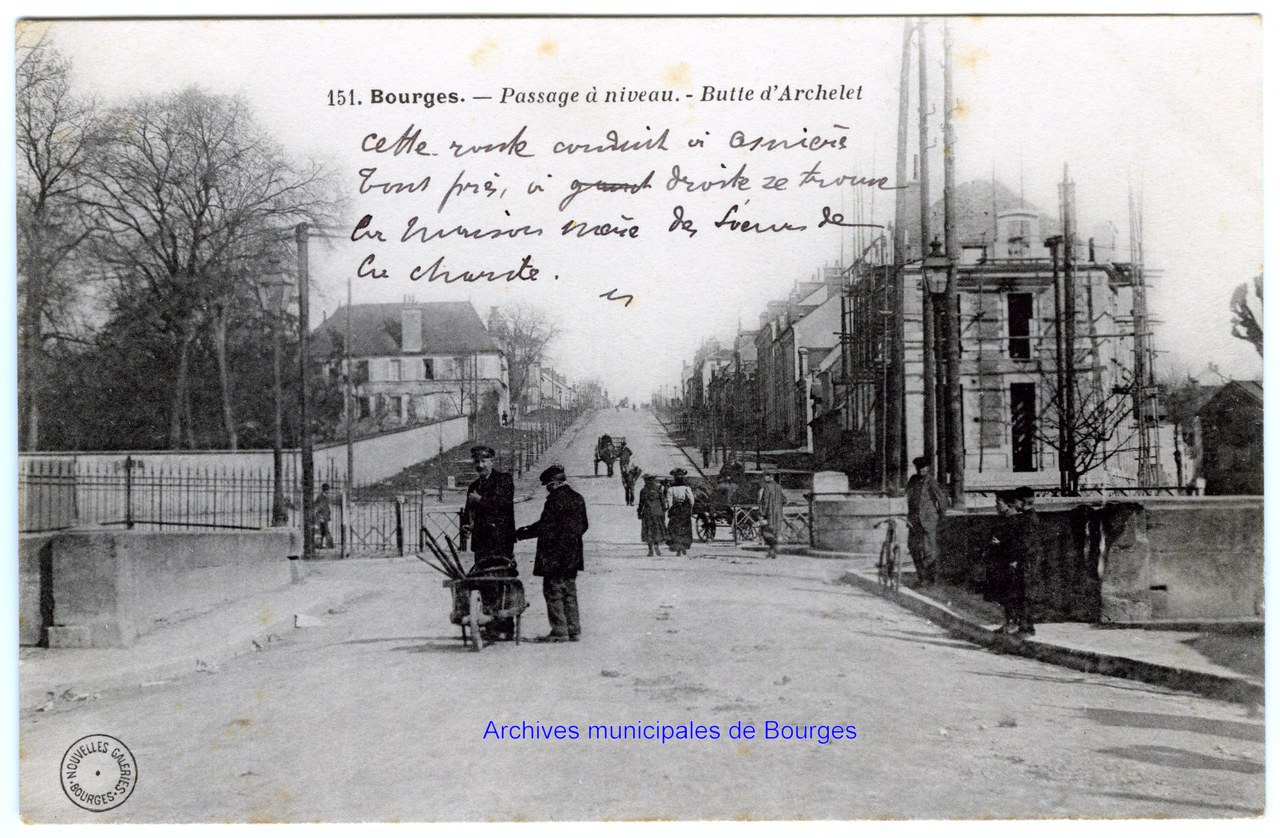 151. Bourges. — Passage à niveau. - Butte d'Archelet
Cette route conduit à Asnière
Tout près, à droite se trouve
la maison mère des Sœurs de
la charité.
Archives municipales de Bourges
NOUVELLES GALERIES
BOURGES